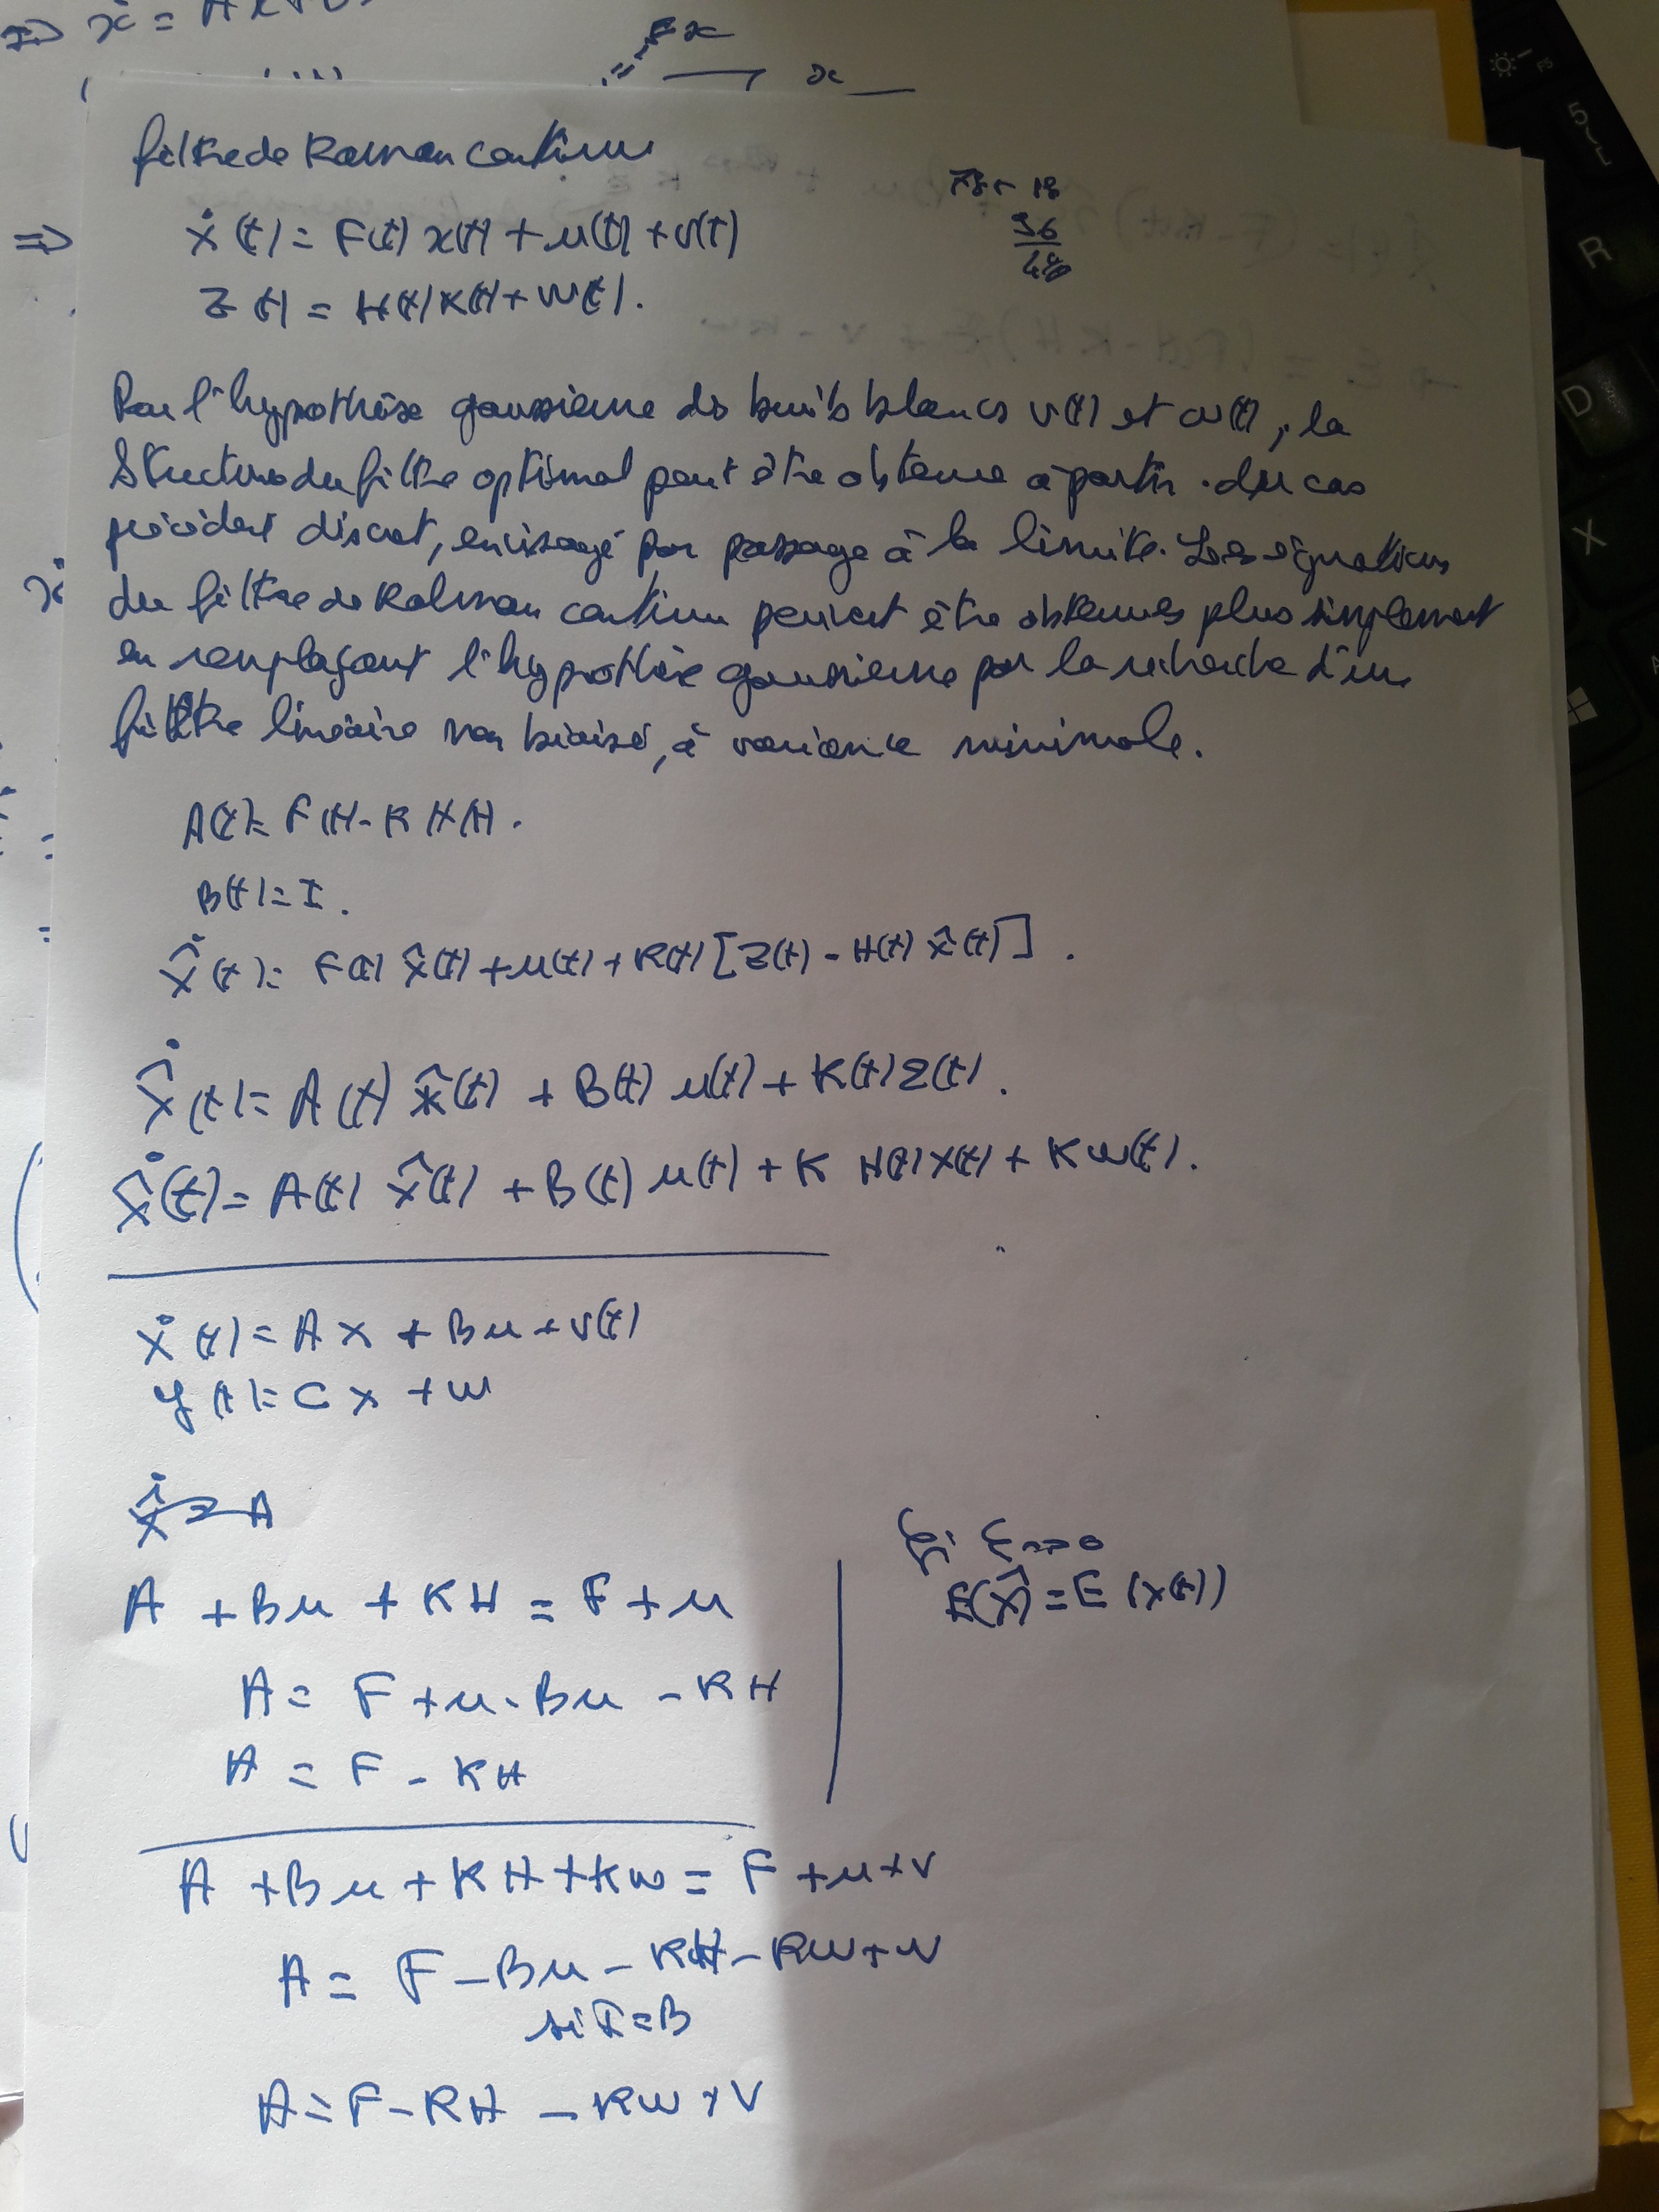 => ẋ = Ax+B
Fx
x
filtre de Kalman continu
78 - 18
36
=> ẋ(t) = F(t) x(t) + u(t) + v(t)
Z(t) = H(t) x(t) + w(t).
Par l'hypothèse gaussienne des bruits blancs v(t) et w(t), la
structure du filtre optimal peut être obtenue à partir du cas
précédent discret, envisagé par passage à la limite. Les équations
du filtre de Kalman continu peuvent être obtenues plus simplement
en remplaçant l'hypothèse gaussienne par la recherche d'un
filtre linéaire non biaisé, à variance minimale.
A(t) = F(t) - K H(t).
B(t) = I.
x̂̇(t) = F(t) x̂(t) + u(t) + K(t) [Z(t) - H(t) x̂(t)].
x̂̇(t) = A(t) x̂(t) + B(t) u(t) + K(t) Z(t).
x̂̇(t) = A(t) x̂(t) + B(t) u(t) + K H(t) x(t) + K w(t).
ẋ(t) = A x + B u + v(t)
y(t) = C x + w
x̂̇ = A
Si ε → 0
E(x̂) = E(x(t))
A + Bu + KH = F + u
A = F + u - Bu - KH
A = F - KH
A + Bu + KH + Kw = F + u + v
A = F - Bu - KH - Kw + v
si I = B
A = F - KH - Kw + v